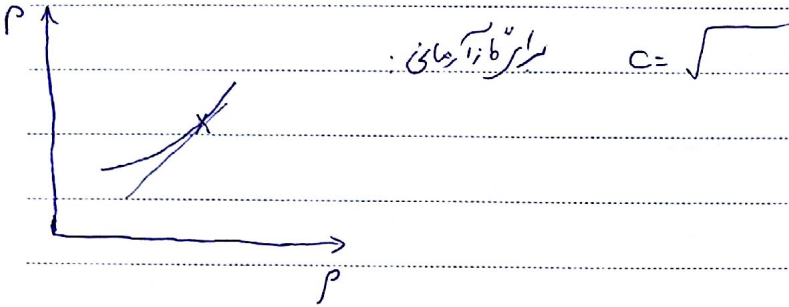 P
برای گاز آرمانی :
C = √
ρ